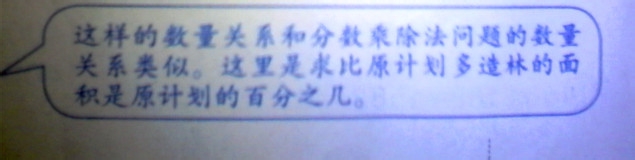 这样的数量关系和分数乘除法问题的数量
关系类似。这里是求比原计划多造林的面
积是原计划的百分之几。